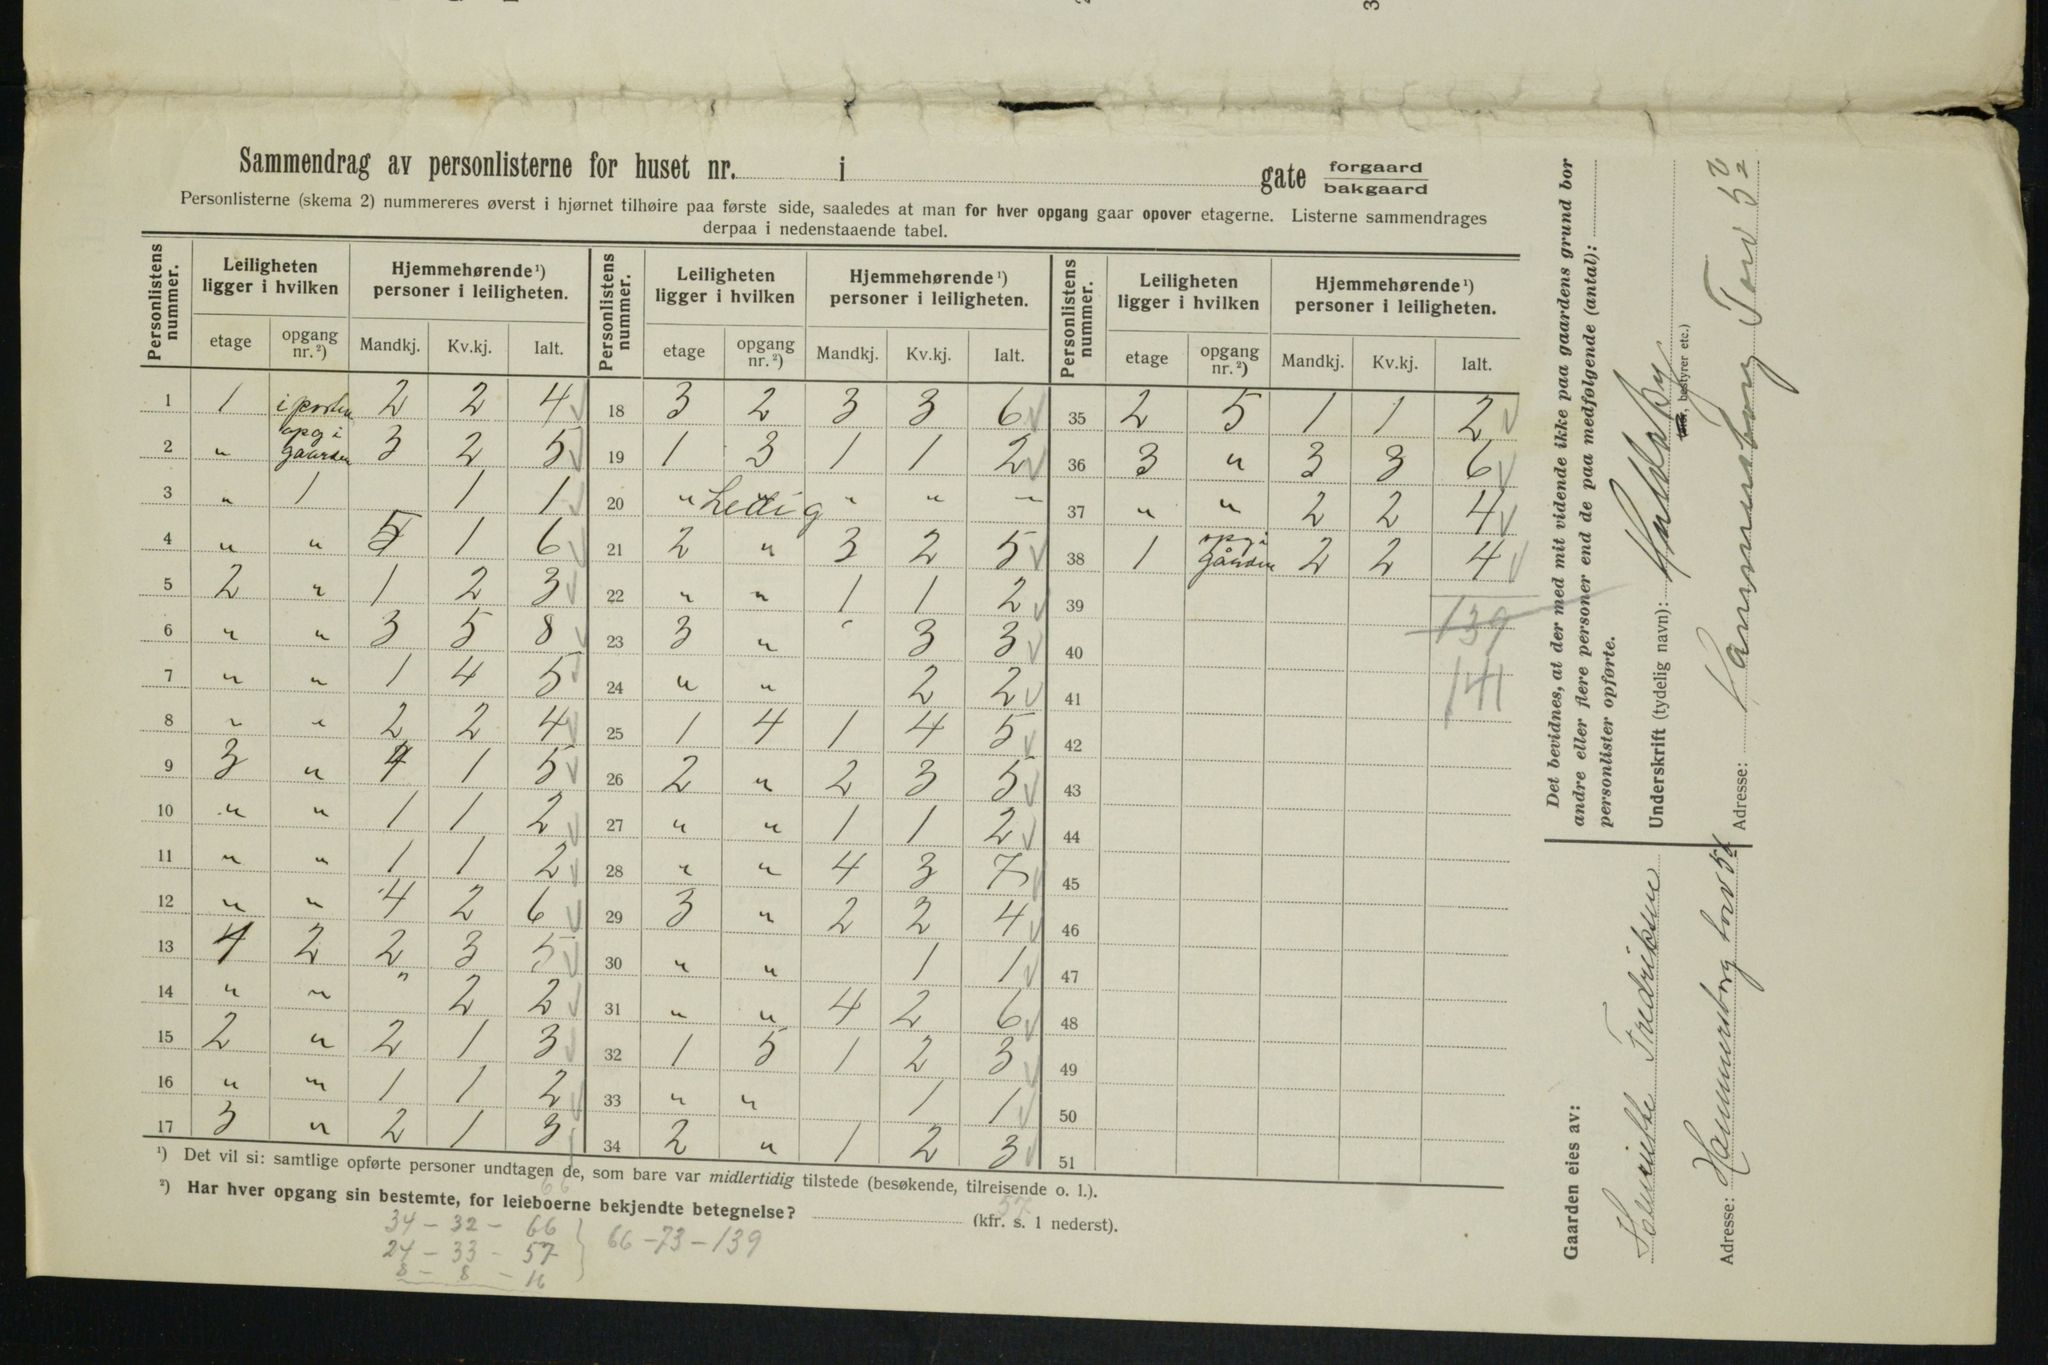 Sammendrag av personlisterne for huset nr. i gate forgaard
bakgaard
Personlisterne (skema 2) nummereres øverst i hjørnet tilhøire paa første side, saaledes at man for hver opgang gaar opover etagerne. Listerne sammendrages
derpaa i nedenstaaende tabel.
Personlistens nummer. Leiligheten ligger i hvilken Hjemmehørende ¹) personer i leiligheten. Personlistens nummer. Leiligheten ligger i hvilken Hjemmehørende ¹) personer i leiligheten. Personlistens nummer. Leiligheten ligger i hvilken Hjemmehørende ¹) personer i leiligheten.
etage opgang nr. ²) Mandkj. Kv.kj. Ialt. etage opgang nr. ²) Mandkj. Kv.kj. Ialt. etage opgang nr. ²) Mandkj. Kv.kj. Ialt.
1 1 i porten 2 2 4 18 3 2 3 3 6 35 2 5 1 1 2
2 " opg i gaarden 3 2 5 19 1 3 1 1 2 36 3 " 3 3 6
3 " 1 1 1 20 " Ledig " " " 37 " " 2 2 4
4 " " 5 1 6 21 2 " 3 2 5 38 1 opg i gården 2 2 4
5 2 " 1 2 3 22 " " 1 1 2 39
6 " " 3 5 8 23 3 " 3 3 40 139
7 " " 1 4 5 24 " " 2 2 41 141
8 " " 2 2 4 25 1 4 1 4 5 42
9 3 " 4 1 5 26 2 " 2 3 5 43
10 " " 1 1 2 27 " " 1 1 2 44
11 " " 1 1 2 28 " " 4 3 7 45
12 " " 4 2 6 29 3 " 2 2 4 46
13 4 2 2 3 5 30 " " 1 1 47
14 " " " 2 2 31 " " 4 2 6 48
15 2 " 2 1 3 32 1 5 1 2 3 49
16 " " 1 1 2 33 " " 1 1 50
17 3 " 2 1 3 34 2 " 1 2 3 51
¹) Det vil si: samtlige opførte personer undtagen de, som bare var midlertidig tilstede (besøkende, tilreisende o. l.).
66
²) Har hver opgang sin bestemte, for leieboerne bekjendte betegnelse? (kfr. s. 1 nederst).
57
34 - 32 - 66
24 - 33 - 57
8 - 8 - 16
66 - 73 - 139
Det bevidnes, at der med mit vidende ikke paa gaardens grund bor
andre eller flere personer end de paa medfølgende (antal):
personlister opførte.
Underskrift (tydelig navn):
, bestyrer etc.)
Adresse: Hammersborg Torv 5
Gaarden eies av:
Fredriksen
Adresse: Hammersborg torv 5